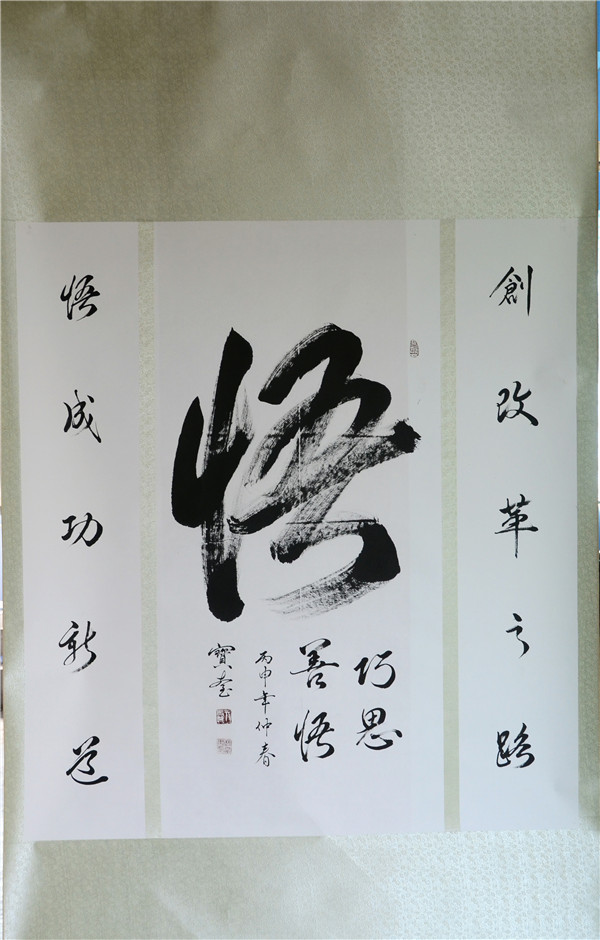 創改革之路
悟
巧思
善悟
丙申年仲春
寶奎
悟成功新道